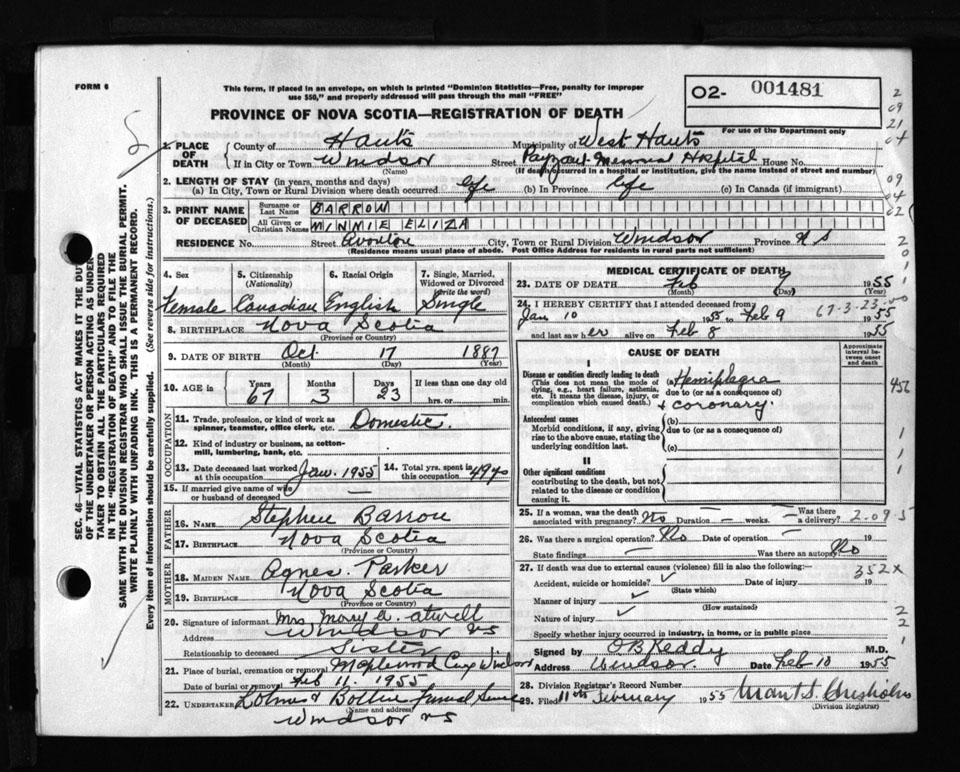 FORM 6
This form, if placed in an envelope, on which is printed "Dominion Statistics—Free, penalty for improper
use $50," and properly addressed will pass through the mail "FREE"
PROVINCE OF NOVA SCOTIA—REGISTRATION OF DEATH
O2- 001481
For use of the Department only
2
09
21
04
09
04
02
2
0
1
1. PLACE OF DEATH
County of Hants Municipality of West Hants
If in City or Town Windsor Street Payzant Memorial Hospital House No.
(Name) (If death occurred in a hospital or institution, give the name instead of street and number)
2. LENGTH OF STAY (in years, months and days)
(a) In City, Town or Rural Division where death occurred life (b) In Province life (c) In Canada (if immigrant)
3. PRINT NAME OF DECEASED
Surname or Last Name BARROW
All Given or Christian Names MINNIE ELIZA
RESIDENCE No. Street Avonton City, Town or Rural Division Windsor Province N S
(Residence means usual place of abode. Post Office Address for residents in rural parts not sufficient)
4. Sex
Female
5. Citizenship (Nationality)
Canadian
6. Racial Origin
English
7. Single, Married, Widowed or Divorced (Write the word)
Single
8. BIRTHPLACE Nova Scotia
(Province or Country)
9. DATE OF BIRTH Oct. 17 1887
(Month) (Day) (Year)
10. AGE in Years Months Days If less than one day old
67 3 23 hrs. or min.
OCCUPATION
11. Trade, profession, or kind of work as
spinner, teamster, office clerk, etc. Domestic.
12. Kind of industry or business, as cotton-
mill, lumbering, bank, etc.
13. Date deceased last worked at this occupation Jan. 1955
14. Total yrs. spent in this occupation 49 40
15. If married give name of wife
or husband of deceased —
FATHER
16. NAME Stephen Barron
17. BIRTHPLACE Nova Scotia
(Province or Country)
MOTHER
18. MAIDEN NAME Agnes. Parker
19. BIRTHPLACE Nova Scotia
(Province or Country)
20. Signature of informant Mrs Mary A. atwell
Address Windsor NS
Relationship to deceased Sister
21. Place of burial, cremation or removal Maplewood Cem Windsor
Date of burial or removal Feb 11. 1955
22. UNDERTAKER Funeral Service
(Name and address)
Windsor NS
MEDICAL CERTIFICATE OF DEATH
23. DATE OF DEATH Feb 9 1955
(Month) (Day) (Year)
24. I HEREBY CERTIFY that I attended deceased from
67-3-23-00
Jan 10 1955 to Feb 9 1955
and last saw her alive on Feb 8 1955
CAUSE OF DEATH
Approximate interval between onset and death
I
Disease or condition directly leading to death
(This does not mean the mode of dying, e.g., heart failure, asthenia, etc. It means the disease, injury, or complication which caused death.)
(a) Hemiplegia
due to (or as a consequence of)
+ coronary.
Antecedent causes
Morbid conditions, if any, giving rise to the above cause, stating the underlying condition last.
(b)
due to (or as a consequence of)
(c)
II
Other significant conditions
contributing to the death, but not related to the disease or condition causing it.
1
1
1
25. If a woman, was the death
associated with pregnancy? No Duration — weeks. Was there a delivery? —
2.09.5
26. Was there a surgical operation? No Date of operation — 19
State findings — Was there an autopsy? No
27. If death was due to external causes (violence) fill in also the following:—
352X
Accident, suicide or homicide? Date of injury 19
(State which)
Manner of injury
(How sustained)
Nature of injury
2
2
1
Specify whether injury occurred in industry, in home, or in public place
Signed by O B Keddy M.D.
Address Windsor. Date Feb 10 1955
28. Division Registrar's Record Number
29. Filed 11th February 1955 Chisholm
(Division Registrar)
SEC. 46—VITAL STATISTICS ACT MAKES IT THE DUTY
OF THE UNDERTAKER OR PERSON ACTING AS UNDER-
TAKER TO OBTAIN ALL THE PARTICULARS REQUIRED
IN THE "REGISTRATION OF DEATH" AND TO FILE THE
SAME WITH THE DIVISION REGISTRAR WHO SHALL ISSUE THE BURIAL PERMIT.
WRITE PLAINLY WITH UNFADING INK. THIS IS A PERMANENT RECORD.
Every item of information should be carefully supplied. (See reverse side for instructions.)